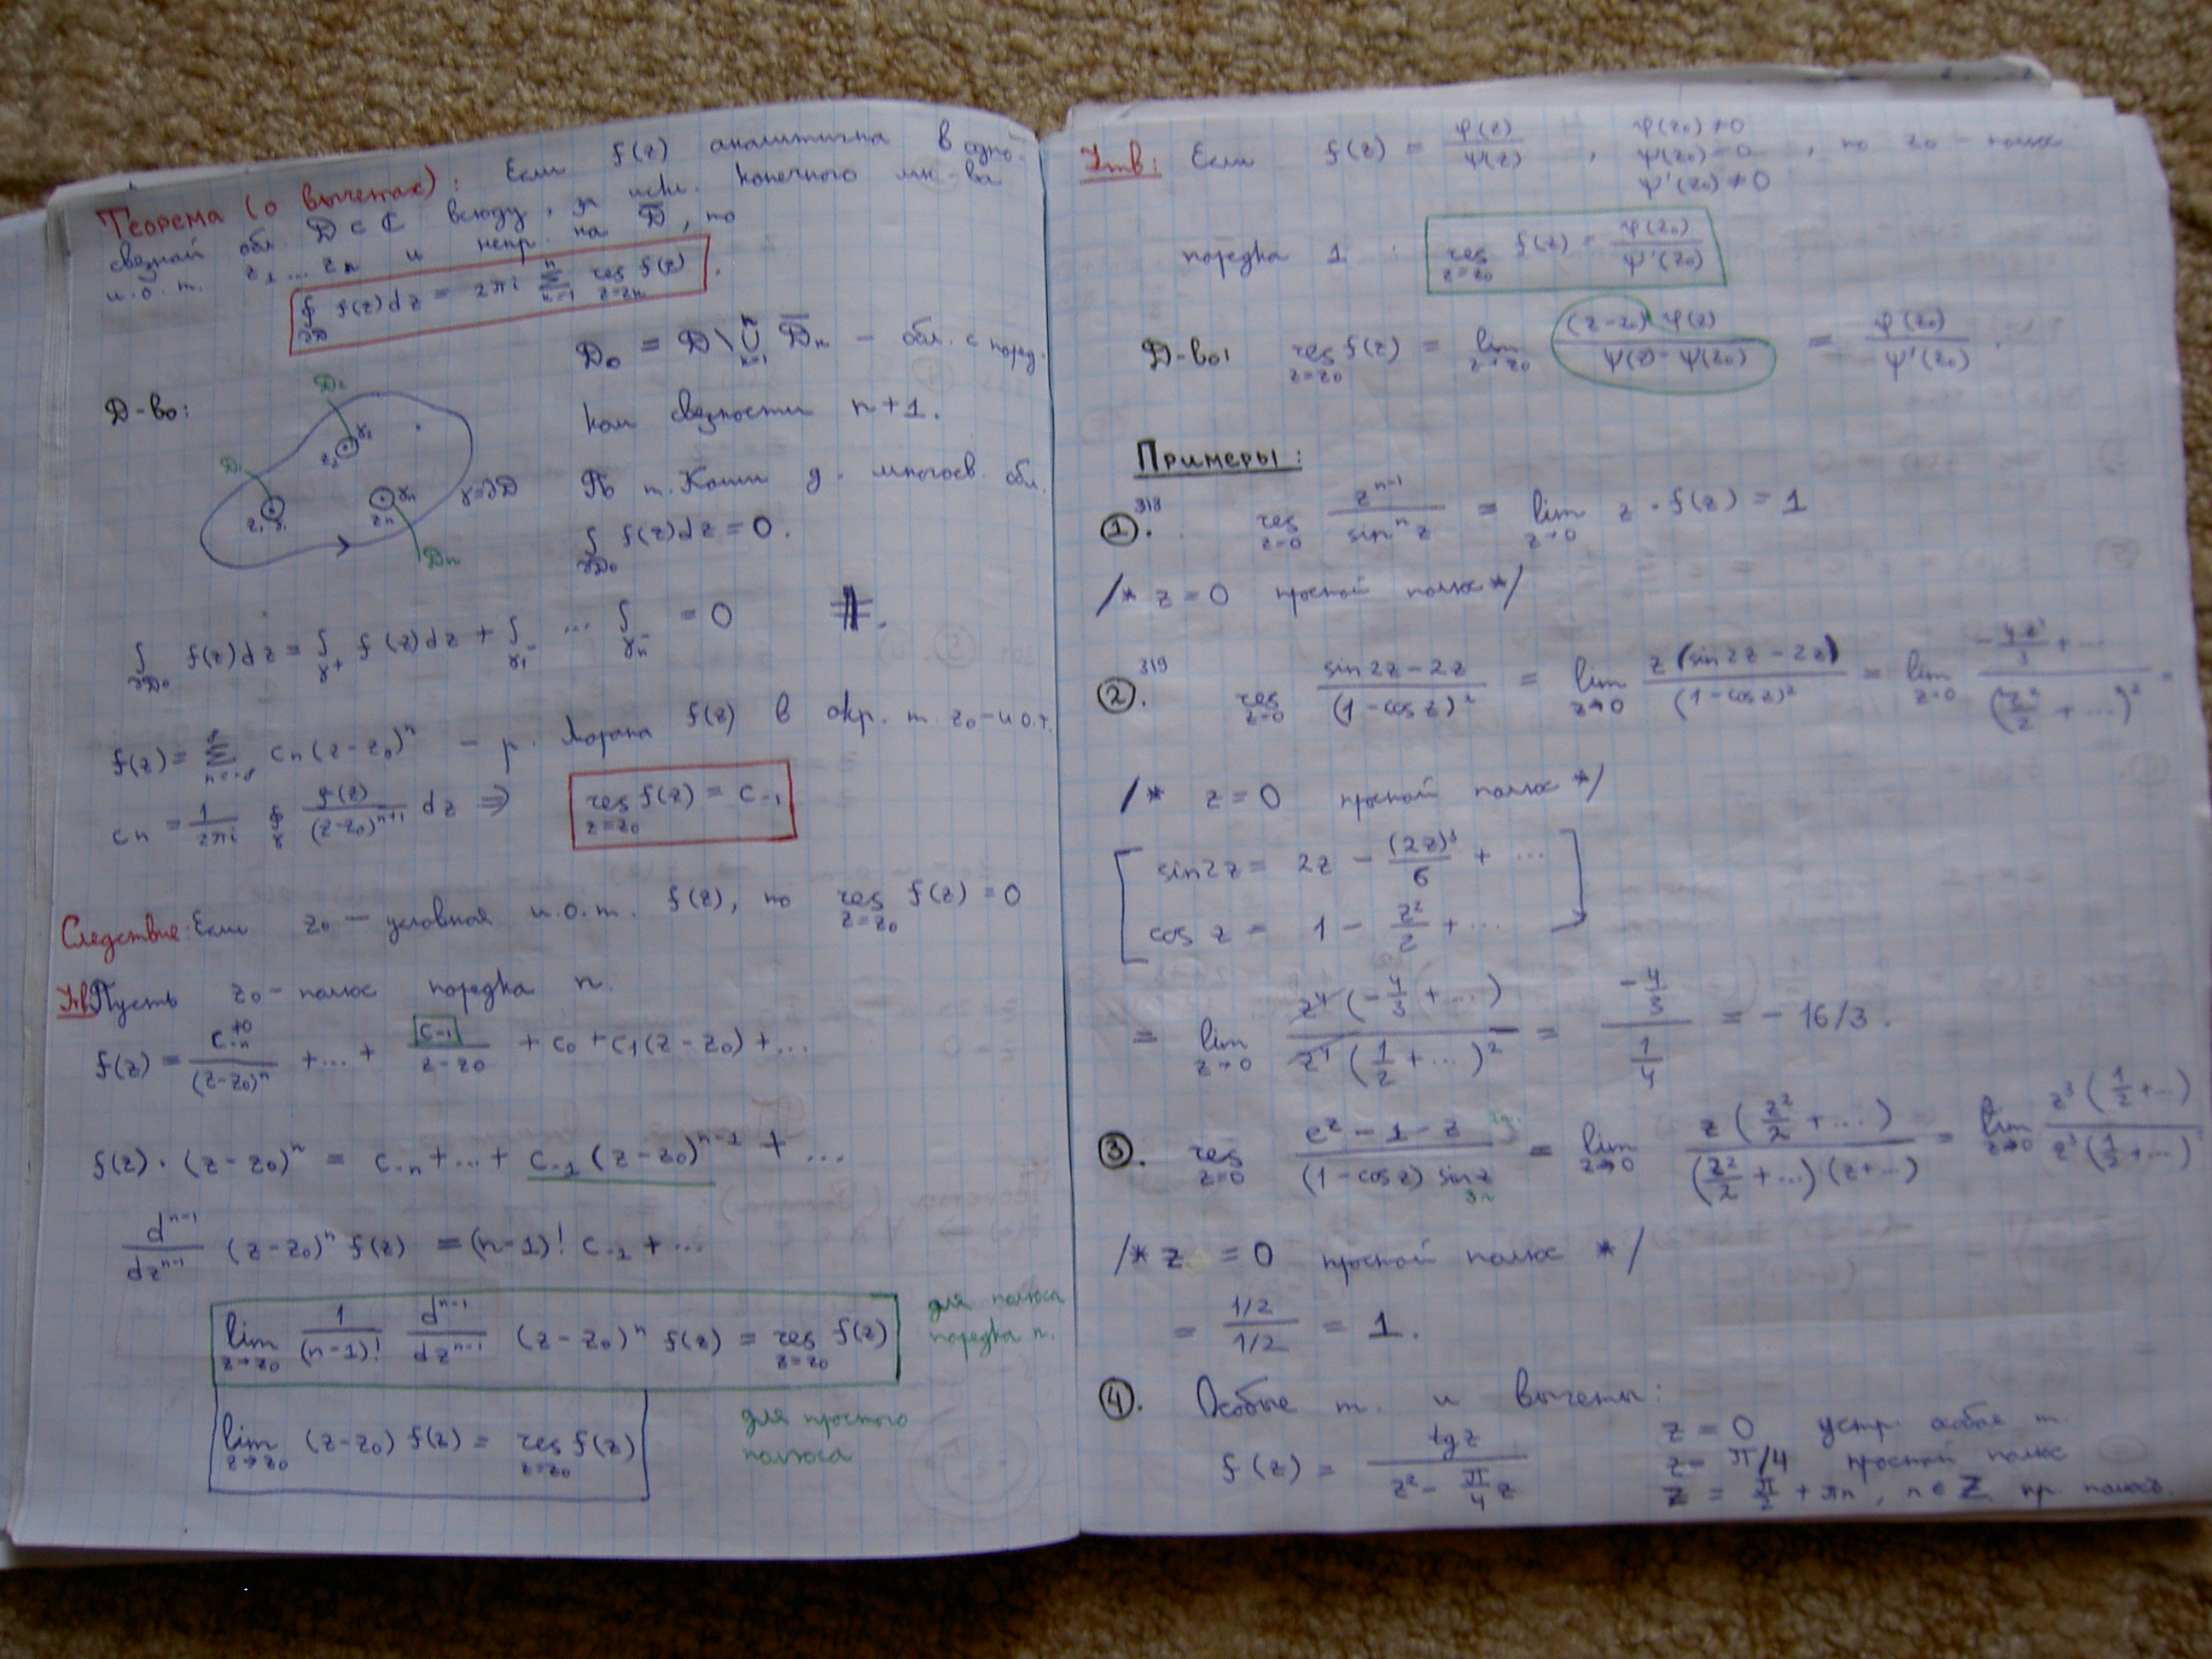 Теорема (о вычетах): Если f(z) аналитична в одно-
связной обл. D ⊂ ℂ всюду, за искл. конечного мн-ва
и.о.т. z₁ ... zₙ и непр. на D̅, то
∮_∂D f(z)dz = 2πi Σ_{k=1}^{n} res_{z=zₖ} f(z).
Д-во:
D₁ D₂ Dₙ z₁ γ₁ z₂ γ₂ zₙ γₙ γ=∂D
D₀ = D \ ⋃_{k=1}^{n} D̅ₖ – обл. с поряд-
ком связности n+1.
По т. Коши д. многосв. обл.
∫_∂D₀ f(z)dz = 0.
∫_∂D₀ f(z)dz = ∫_γ⁺ f(z)dz + ∫_γ₁⁻ ... ∫_γₙ⁻ = 0 #.
f(z) = Σ_{n=-∞}^{∞} cₙ(z-z₀)ⁿ – р. Лорана f(z) в окр. т. z₀ – и.о.т.
cₙ = 1/(2πi) ∮_γ f(z)/(z-z₀)ⁿ⁺¹ dz ⇒ res_{z=z₀} f(z) = c₋₁
Следствие: Если z₀ – условная и.о.т. f(z), то res_{z=z₀} f(z) = 0
Утв. Пусть z₀ – полюс порядка n.
f(z) = c₋ₙ^{≠0}/(z-z₀)ⁿ + ... + c₋₁/(z-z₀) + c₀ + c₁(z-z₀) + ...
f(z)·(z-z₀)ⁿ = c₋ₙ + ... + c₋₁(z-z₀)ⁿ⁻¹ + ...
dⁿ⁻¹/dzⁿ⁻¹ (z-z₀)ⁿ f(z) = (n-1)! c₋₁ + ...
lim_{z→z₀} 1/(n-1)! dⁿ⁻¹/dzⁿ⁻¹ (z-z₀)ⁿ f(z) = res_{z=z₀} f(z) для полюса порядка n.
lim_{z→z₀} (z-z₀) f(z) = res_{z=z₀} f(z) для простого полюса
Утв: Если f(z) = φ(z)/ψ(z), φ(z₀)≠0 ψ(z₀)=0 ψ'(z₀)≠0, то z₀ – полюс
порядка 1 : res_{z=z₀} f(z) = φ(z₀)/ψ'(z₀)
Д-во: res_{z=z₀} f(z) = lim_{z→z₀} (z-z₀)φ(z)/(ψ(z)-ψ(z₀)) = φ(z₀)/ψ'(z₀).
Примеры:
①. 318 res_{z=0} zⁿ⁻¹/sinⁿz = lim_{z→0} z·f(z) = 1
/* z=0 простой полюс */
②. 319 res_{z=0} (sin2z-2z)/(1-cosz)² = lim_{z→0} z(sin2z-2z)/(1-cosz)² = lim_{z→0} (-4z⁴/3 + ...)/(z²/2 + ...)² =
/* z=0 простой полюс */
[ sin2z = 2z - (2z)³/6 + ...
cos z = 1 - z²/2 + ... ]
= lim_{z→0} z⁴(-4/3 + ...)/(z⁴(1/2 + ...)²) = (-4/3)/(1/4) = -16/3.
③. res_{z=0} (e^z-1-z)/((1-cosz) sinz) = lim_{z→0} z(z²/2 + ...)/((z²/2 + ...)(z+...)) = lim_{z→0} z³(1/2 + ...)/(z³(1/2 + ...))
/* z=0 простой полюс */
= (1/2)/(1/2) = 1.
④. Особые т. и вычеты:
f(z) = tg z/(z² - π/4 z)
z=0 устр. особая т.
z=π/4 простой полюс
z = π/2 + πn, n∈ℤ пр. полюс.